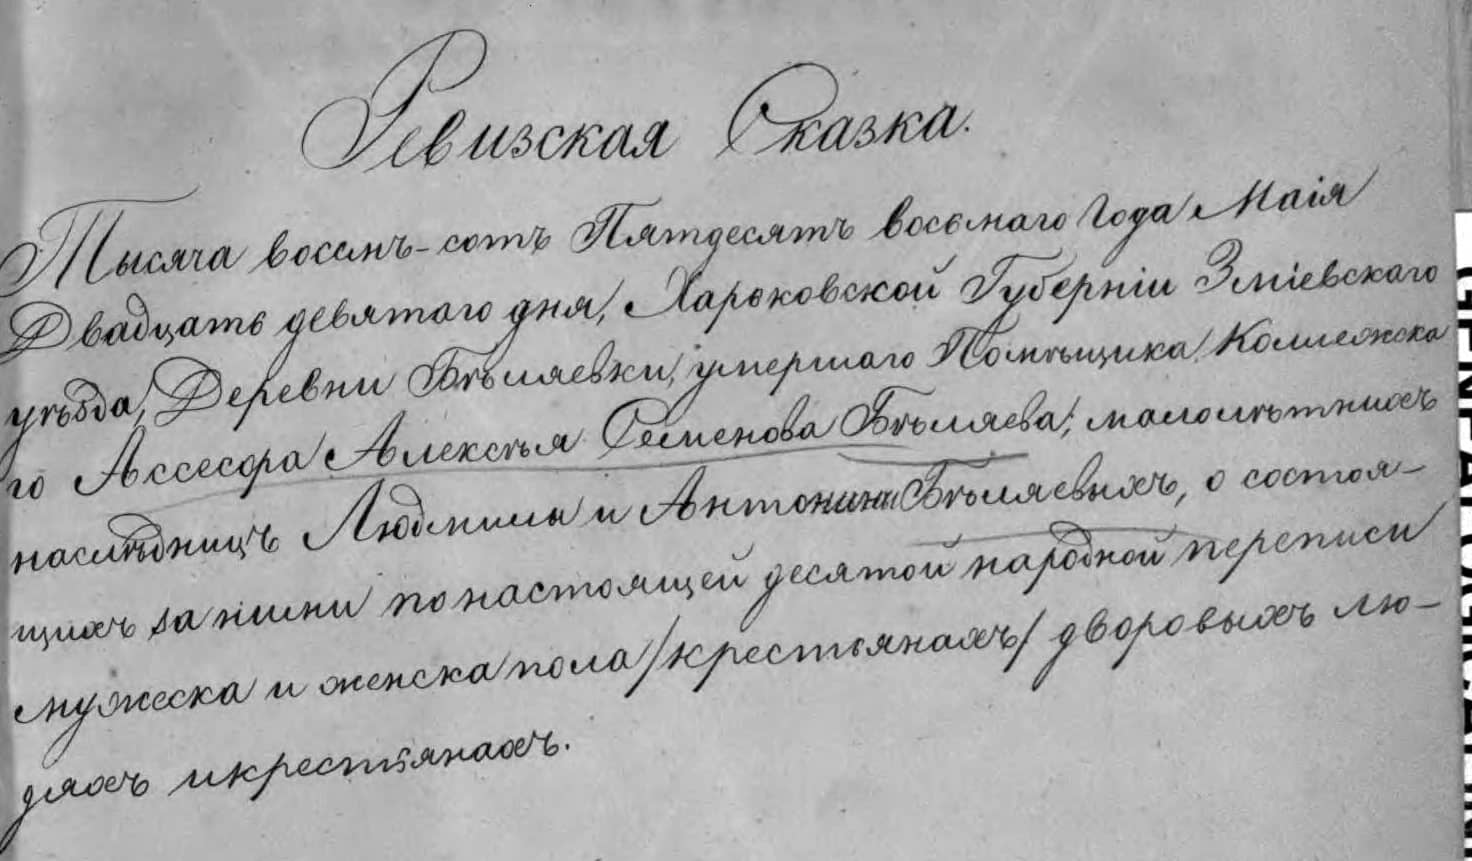 Ревизская Сказка.
Тысяча восемъ-сотъ Пятдесятъ восьмаго Года Маія
Двадцать девятаго дня, Харьковской Губерніи Зміевскаго
уѣзда, Деревни Бѣляевки, умершаго Помѣщика Коллежска
го Ассесора Алексѣя Семенова Бѣляева, малолѣтнихъ
наслѣдницъ Людмилы и Антонины Бѣляевыхъ, о состоя-
щихъ за ними по настоящей десятой народной переписи
мужеска и женска пола /крестьянахъ/ дворовыхъ лю-
дяхъ и крестьянахъ.